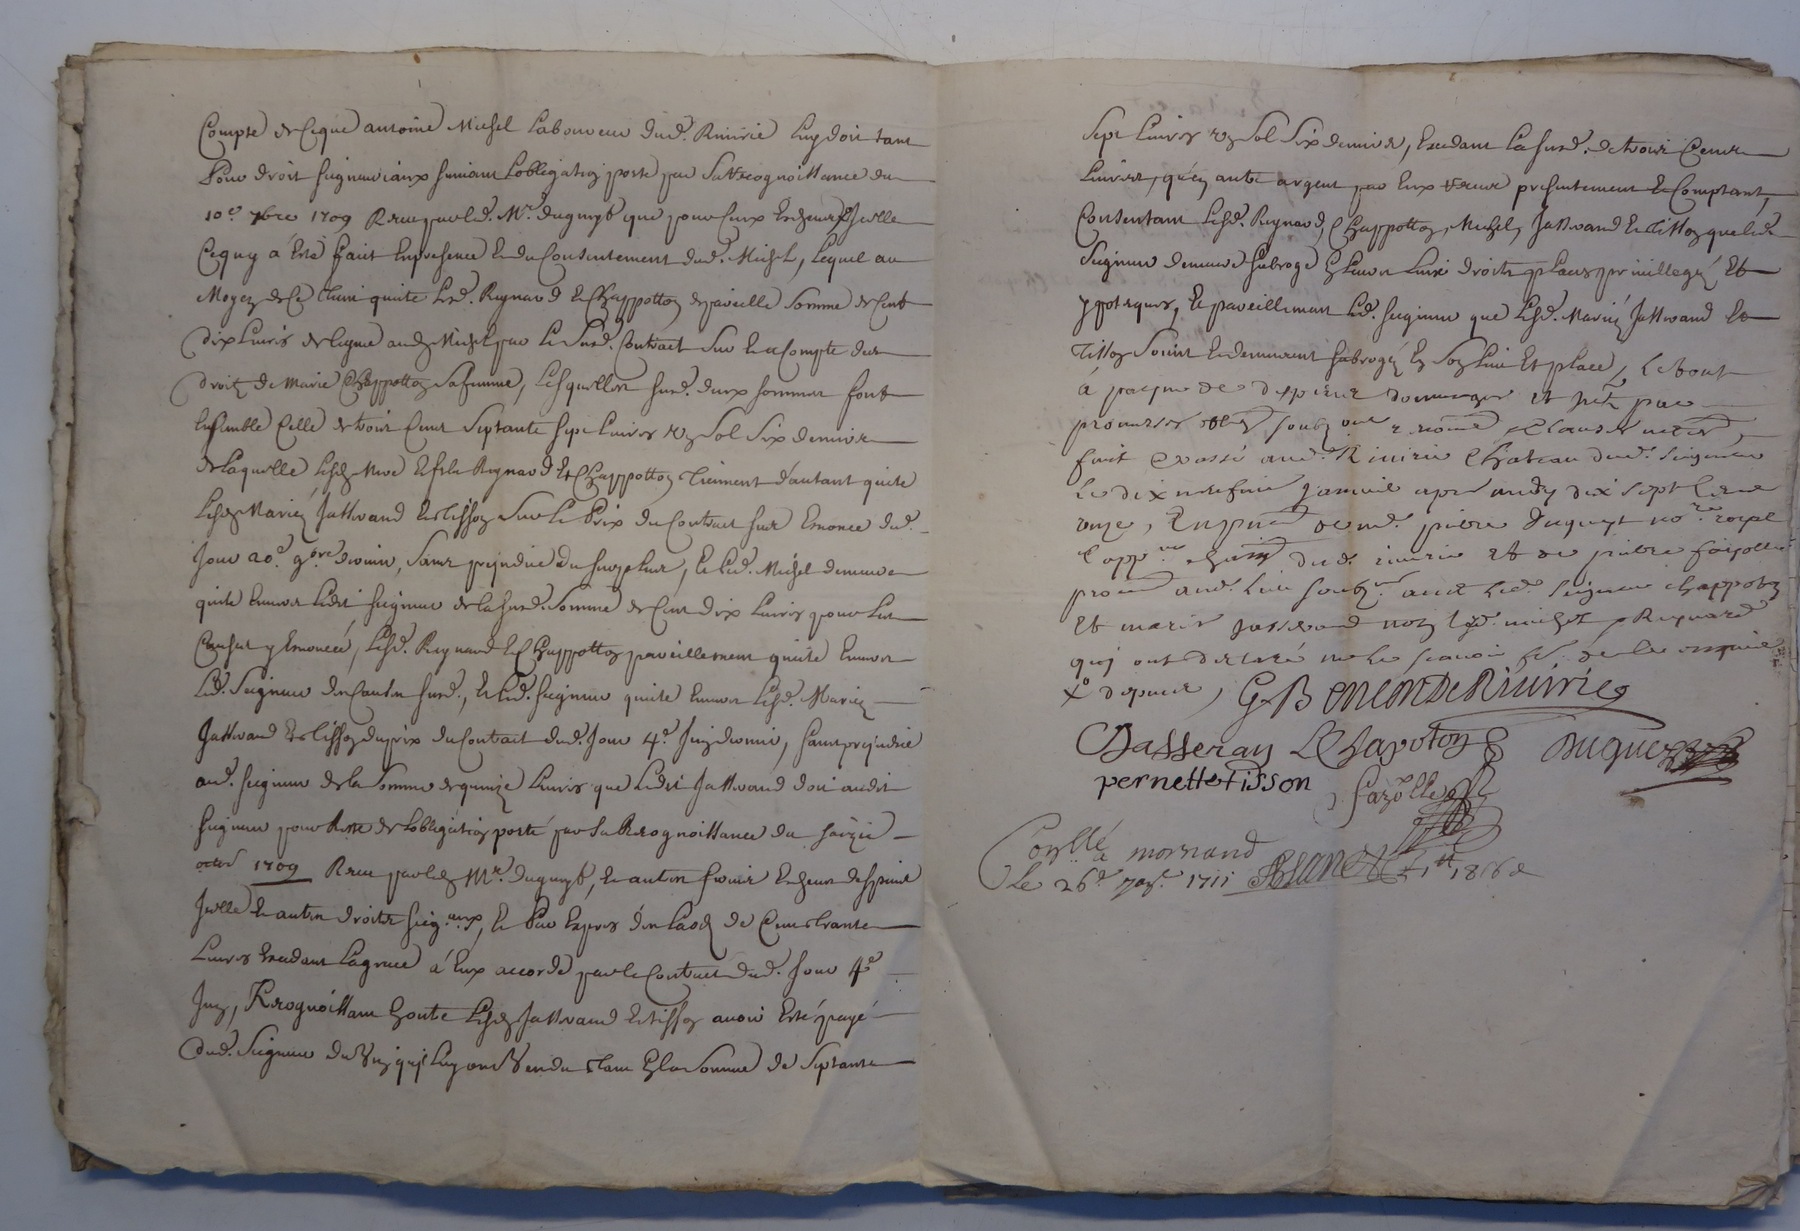 Compte de ce que antoine Michel Laboureur dud. Riuirie luy doit tant
pour droit seigneuriaux suiuant l'obligation porté par sa recognoissance du
10e 7bre 1709 Receu par led. Mr. dugueyt que pour ceux escheux Icelle
Ce quy a Esté fait En presence Et du Consentement dud. Michel, lequel au
Moyen de Ce tient quite lesd. Reynard Et Chappotton de pareille somme de Cent
dix liures de ligne aud. Michel par le susd. Contract sur Et a Compte des
droitz de Marie Chappotton sa femme, lesquelles susd. deux sommes font
Ensemble Celle de trois Cent septante sept liures un sol six deniers
de laquelle lesd. Mere Et fils Reynard Et Chappotton tiennent d'autant quite
lesd. Mariez Jasserand Et tisson sur le prix du Contract sus Enoncé dud.
Jour 20e. 9bre dernier, sans prejudice du surplus, Et led. Michel demeure
quite Enuers ledit seigneur de la susd. somme de Cent dix liures pour les
Causes y Enoncés, lesd. Reynard Et Chappotton pareillement quite Enuers
led. Seigneur des Causes susd., Et led. seigneur quite Enuers lesd. Mariez
Jasserand Et tisson du prix du Contract dud. Jour 4e. Juin dernier, sans prejudice
aud. seigneur de la somme de quinze liures que ledit Jasserand doit audit
seigneur pour Reste de l'obligation porté par sa Recognoissance du saizie
octob 1709 Receu par led. Mr. duguyt, Et autres seruis Escheus despuis
Icelle Et autres droits seig.aux, Et par Expres d'en laod de Cent trante
liures Excedant la grace a Eux accordé par le Contract dud. Jour 4e
Juin, Recognoissant Encore lesd. Jasserand Et tisson auoir Esté payé
dud. Seigneur du vin qu'il luy ont vendu dans la somme de septante
sept liures un sol six deniers, Excedant la susd. de trois Cent
liures, qu'en autre argent par Eux Receu presentement Et Comptant,
Consentant lesd. Reynard, Chappotton, Michel, Jasserand Et tisson que led.
Seigneur demeure subrogé En leur lieu droits places priuillegés Et
ypoteques, Et pareillement led. seigneur que lesd. Mariéz Jasserand Et
tisson soient Et demeurent subrogés En son lieu Et place, le tout
à peyne de despens dommages et
promesses oblig soubz on renon Clauses
fait Et passé aud. Riuirie Chateau dud. Seigneur
le dix neufuie Januier apres midy dix sept Cent
onze, En presence de me. pierre duguyt no.re royal
dud. riuirie et de pierre fazolle
aud. lieu soubz. auec led. seigneur Chappoton
Et mariés Jasserand non led. michel Reynard
quy ont declaré ne le scauoir
G B ONEON De RIuirie
C Jasseran L Chapoton duguey
pernette tisson fazolle
Conllé a mornand
le 26e. Janr. 1711